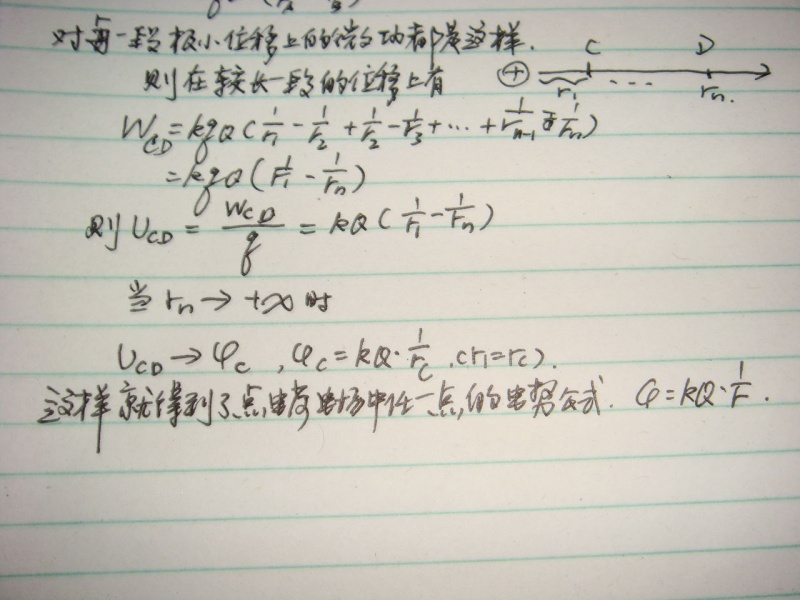 对每一段极小位移上的微功都是这样.
则在较长一段的位移上有
⊕ C D
r₁ ... rₙ.
W_CD = kqQ(1/r₁ - 1/r₂ + 1/r₂ - 1/r₃ + ... + 1/rₙ₋₁ - 1/rₙ)
= kqQ(1/r₁ - 1/rₙ)
则 U_CD = W_CD/q = kQ(1/r₁ - 1/rₙ)
当 rₙ → +∞ 时
U_CD → φ_C , φ_C = kQ·1/r_C .(r₁=r_C).
这样就得到了点电荷电场中任一点的电势公式. φ=kQ·1/r.